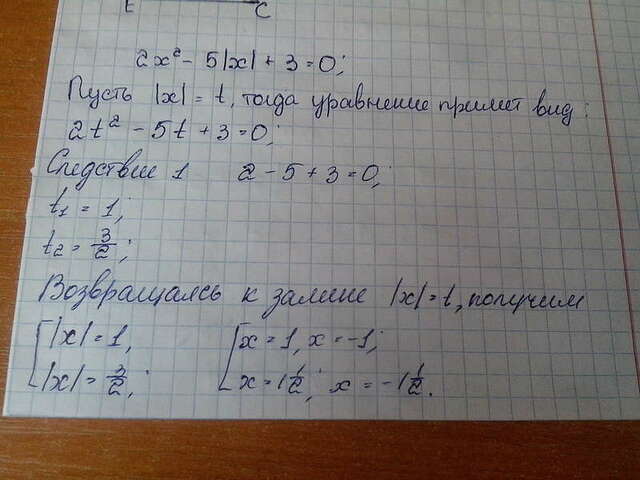 E C
2x² - 5|x| + 3 = 0;
Пусть |x| = t, тогда уравнение примет вид:
2t² - 5t + 3 = 0;
Следствие 1 2 - 5 + 3 = 0;
t₁ = 1;
t₂ = 3/2;
Возвращаясь к замене |x| = t, получим
[|x| = 1, [x = 1, x = -1;
|x| = 3/2; x = 1 1/2; x = -1 1/2.